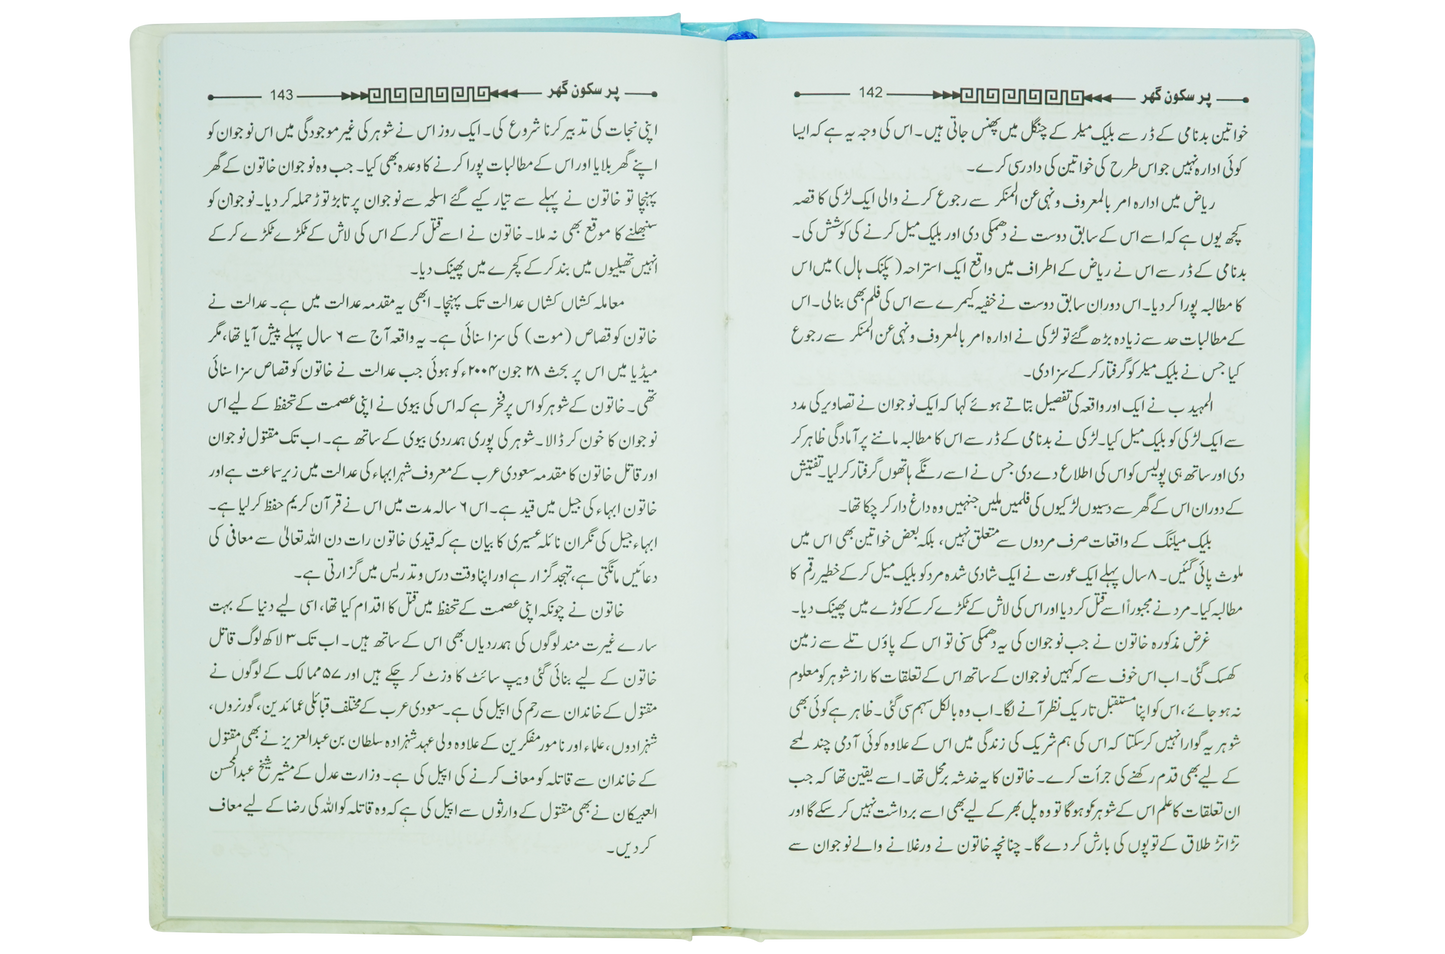 پر سکون گھر 142
خواتین بدنامی کے ڈر سے بلیک میلر کے چنگل میں پھنس جاتی ہیں۔ اس کی وجہ یہ ہے کہ ایسا
کوئی ادارہ نہیں جو اس طرح کی خواتین کی دادرسی کرے۔
ریاض میں ادارہ امر بالمعروف ونہی عن المنکر سے رجوع کرنے والی ایک لڑکی کا قصہ
کچھ یوں ہے کہ اسے اس کے سابق دوست نے دھمکی دی اور بلیک میل کرنے کی کوشش کی۔
بدنامی کے ڈر سے اس نے ریاض کے اطراف میں واقع ایک استراحہ (پکنک ہال) میں اس
کا مطالبہ پورا کر دیا۔ اس دوران سابق دوست نے خفیہ کیمرے سے اس کی فلم بھی بنالی۔ اس
کے مطالبات حد سے زیادہ بڑھ گئے تو لڑکی نے ادارہ امر بالمعروف ونہی عن المنکر سے رجوع
کیا جس نے بلیک میلر کو گرفتار کر کے سزا دی۔
المہیدب نے ایک اور واقعہ کی تفصیل بتاتے ہوئے کہا کہ ایک نوجوان نے تصاویر کی مدد
سے ایک لڑکی کو بلیک میل کیا۔ لڑکی نے بدنامی کے ڈر سے اس کا مطالبہ ماننے پر آمادگی ظاہر کر
دی اور ساتھ ہی پولیس کو اس کی اطلاع دے دی جس نے اسے رنگے ہاتھوں گرفتار کر لیا۔ تفتیش
کے دوران اس کے گھر سے دسیوں لڑکیوں کی فلمیں ملیں جنہیں وہ داغ دار کر چکا تھا۔
بلیک میلنگ کے واقعات صرف مردوں سے متعلق نہیں، بلکہ بعض خواتین بھی اس میں
ملوث پائی گئیں۔ ۸ سال پہلے ایک عورت نے ایک شادی شدہ مرد کو بلیک میل کر کے خطیر رقم کا
مطالبہ کیا۔ مرد نے مجبوراً اسے قتل کر دیا اور اس کی لاش کے ٹکڑے کر کے کوڑے میں پھینک دیا۔
غرض مذکورہ خاتون نے جب نوجوان کی یہ دھمکی سنی تو اس کے پاؤں تلے سے زمین
کھسک گئی۔ اب اس خوف سے کہ کہیں نوجوان کے ساتھ اس کے تعلقات کا راز شوہر کو معلوم
نہ ہو جائے، اس کو اپنا مستقبل تاریک نظر آنے لگا۔ اب وہ بالکل سہم سی گئی۔ ظاہر ہے کوئی بھی
شوہر یہ گوارا نہیں کر سکتا کہ اس کی ہم شریک کی زندگی میں اس کے علاوہ کوئی آدمی چند لمحے
کے لیے بھی قدم رکھنے کی جرأت کرے۔ خاتون کا یہ خدشہ برمحل تھا۔ اسے یقین تھا کہ جب
ان تعلقات کا علم اس کے شوہر کو ہوگا تو وہ پل بھر کے لیے بھی اسے برداشت نہیں کر سکے گا اور
تڑاتڑ طلاق کے توپوں کی بارش کر دے گا۔ چنانچہ خاتون نے ورغلانے والے نوجوان سے
پر سکون گھر 143
اپنی نجات کی تدبیر کرنا شروع کی۔ ایک روز اس نے شوہر کی غیر موجودگی میں اس نوجوان کو
اپنے گھر بلایا اور اس کے مطالبات پورا کرنے کا وعدہ بھی کیا۔ جب وہ نوجوان خاتون کے گھر
پہنچا تو خاتون نے پہلے سے تیار کیے گئے اسلحہ سے نوجوان پر تابڑ توڑ حملہ کر دیا۔ نوجوان کو
سنبھلنے کا موقع بھی نہ ملا۔ خاتون نے اسے قتل کر کے اس کی لاش کے ٹکڑے ٹکڑے کر کے
انہیں تھیلیوں میں بند کر کے کچرے میں پھینک دیا۔
معاملہ کشاں کشاں عدالت تک پہنچا۔ ابھی یہ مقدمہ عدالت میں ہے۔ عدالت نے
خاتون کو قصاص (موت) کی سزا سنائی ہے۔ یہ واقعہ آج سے ۶ سال پہلے پیش آیا تھا، مگر
میڈیا میں اس پر بحث ۲۸ جون ۲۰۰۴ء کو ہوئی جب عدالت نے خاتون کو قصاص سزا سنائی
تھی۔ خاتون کے شوہر کو اس پر فخر ہے کہ اس کی بیوی نے اپنی عصمت کے تحفظ کے لیے اس
نوجوان کا خون کر ڈالا۔ شوہر کی پوری ہمدردی بیوی کے ساتھ ہے۔ اب تک مقتول نوجوان
اور قاتل خاتون کا مقدمہ سعودی عرب کے معروف شہر ابہاء کی عدالت میں زیر سماعت ہے اور
خاتون ابہاء کی جیل میں قید ہے۔ اس ۶ سالہ مدت میں اس نے قرآن کریم حفظ کر لیا ہے۔
ابہاء جیل کی نگران نائلہ عسیری کا بیان ہے کہ قیدی خاتون رات دن اللہ تعالیٰ سے معافی کی
دعائیں مانگتی ہے، تہجد گزار ہے اور اپنا وقت درس وتدریس میں گزارتی ہے۔
خاتون نے چونکہ اپنی عصمت کے تحفظ میں قتل کا اقدام کیا تھا، اسی لیے دنیا کے بہت
سارے غیرت مند لوگوں کی ہمدردیاں بھی اس کے ساتھ ہیں۔ اب تک ۳ لاکھ لوگ قاتل
خاتون کے لیے بنائی گئی ویب سائٹ کا وزٹ کر چکے ہیں اور ۵۷ ممالک کے لوگوں نے
مقتول کے خاندان سے رحم کی اپیل کی ہے۔ سعودی عرب کے مختلف قبائلی عمائدین، گورنروں،
شہزادوں، علماء اور نامور مفکرین کے علاوہ ولی عہد شہزادہ سلطان بن عبدالعزیز نے بھی مقتول
کے خاندان سے قاتلہ کو معاف کرنے کی اپیل کی ہے۔ وزارت عدل کے مشیر شیخ عبدالمحسن
العبیکان نے بھی مقتول کے وارثوں سے اپیل کی ہے کہ وہ قاتلہ کو اللہ کی رضا کے لیے معاف
کر دیں۔